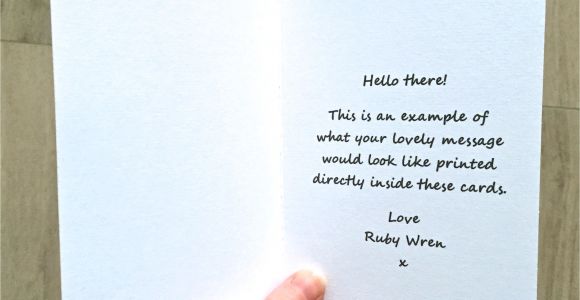 Hello there!
This is an example of
what your lovely message
would look like printed
directly inside these cards.
Love
Ruby Wren
x